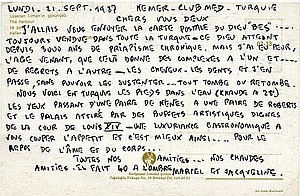 LUNDI. 21. SEPT. 1987 KEMER. CLUB MED. TURQUIE
CHERS VOUS DEUX
...J'ALLAIS VOUS ENVOYER LA CARTE POSTALE DU DIEU "BES"...
TOUJOURS VENDUE DANS TOUTE LA TURQUIE. CE DIEU ATTEINT
DEPUIS 3000 ANS DE PRIAPISME CHRONIQUE, MAIS J'AI PEUR,
L'AGE VENANT, QUE CELA DONNE DES COMPLEXES A L'UN ET...
DE REGRETS A L'AUTRE... LES CHEVEUX. LES DENTS ET J'EN
PASSE, SONT POUVOIR LES SUSTENTER... TOUT TOMBE OU RETOMBE.
NOUS VOILA ET TURQUIE LES PIEDS DANS L'EAU (CHAUDE A 28°)
LES YEUX PASSANT D'UNE PAIRE DE A UNE PAIRE DE ROBERTS
ET LE PALAIS ATTIRÉ PAR DES BUFFETS ARTISTIQUES DIGNES
DE LA COUR DE LOUIS XIV — UNE LUXURIANCE GASTRONOMIQUE A
VOUS COUPER L'APPETIT ET C'EST MIEUX AINSI... POUR LE
REPOS DE L'ÂME ET DU CORPS...
TOUTES NOS AMITIÉS... NOS CHAUDES
AMITIES. EN FAIT 40 A L'OMBRE MARCEL ET JACQUELINE.